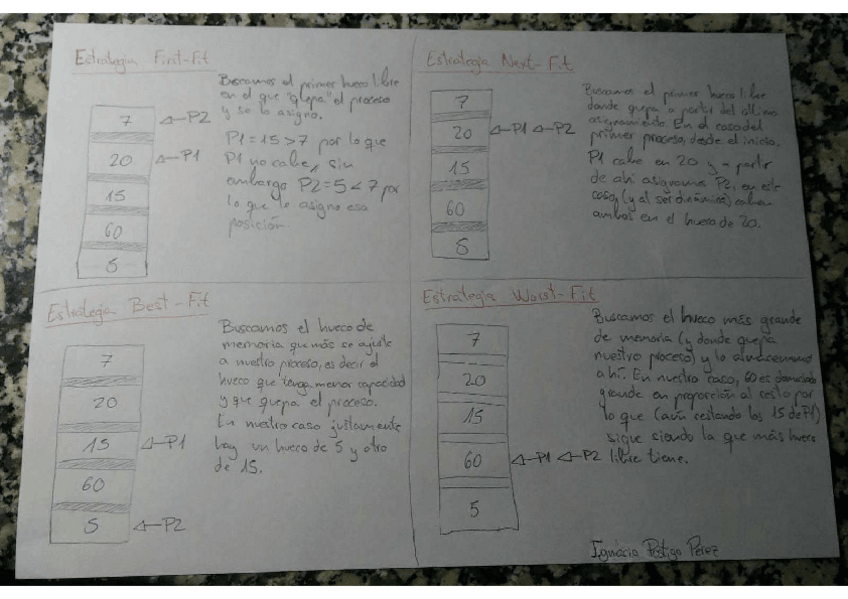 Estrategia First-Fit
Buscamos el primer hueco libre
en el que "quepa" el proceso
y se lo asigno.
P1=15>7 por lo que
P1 no cabe, sin
embargo P2=5<7 por
lo que le asigno esa
posición.
7 ◁—P2
20 ◁—P1
15
60
5
Estrategia Next-Fit
Buscamos el primer hueco libre
donde quepa a partir del último
asignamiento. En el caso del
primer proceso, desde el inicio.
P1 cabe en 20 y a partir
de ahí asignamos P2, en este
caso, (y al ser dinámica) caben
ambos en el hueco de 20.
7
20 ◁—P1 ◁—P2
15
60
5
Estrategia Best-Fit
Buscamos el hueco de
memoria que más se ajuste
a nuestro proceso, es decir el
hueco que tenga menor capacidad
y que quepa el proceso.
En nuestro caso justamente
hay un hueco de 5 y otro
de 15.
7
20
15 ◁—P1
60
5 ◁—P2
Estrategia Worst-Fit
Buscamos el hueco más grande
de memoria (y donde quepa
nuestro proceso) y lo
ahí. En nuestro caso, 60 es demasiado
grande en proporción al resto por
lo que (aún restando los 15 de P1)
sigue siendo la que más hueco
libre tiene.
7
20
15
60 ◁—P1 ◁—P2
5
Ignacio Postigo Pérez